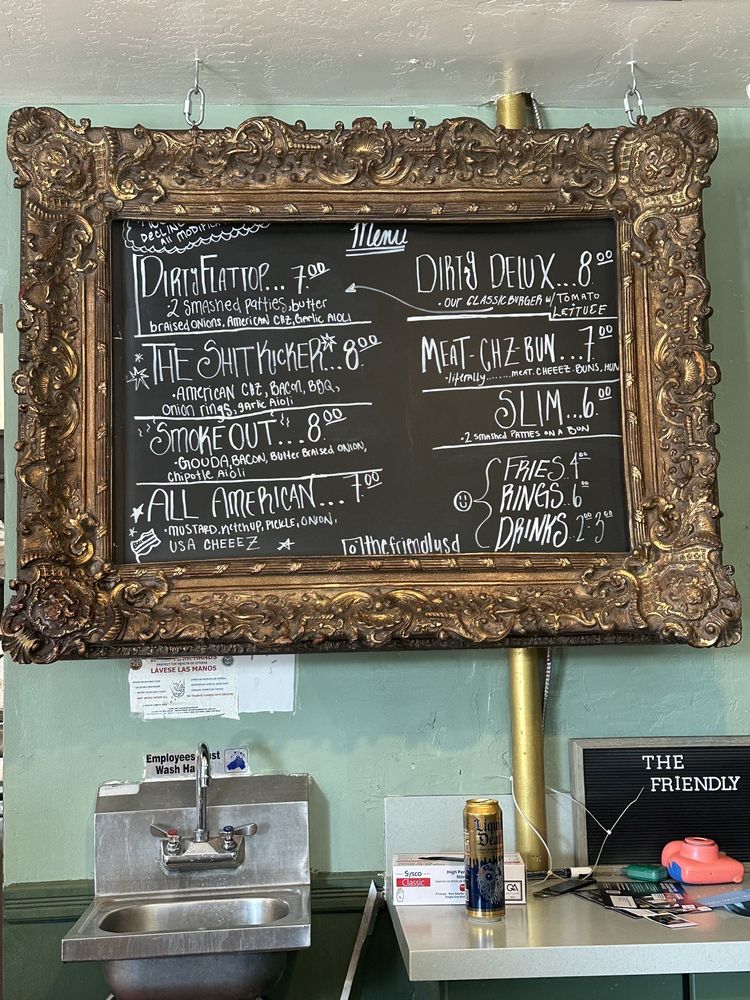 DECLINE
ALL MODIFICA
Menu
DIRTY FLATTOP... 7.00
·2 SMASHED PATTIES, BUTTER
BRAISED ONIONS, AMERICAN CHZ, GARLIC AIOLI
THE SHIT KICKER...8.00
·AMERICAN CHZ, BACON, BBQ,
ONION RINGS, GARLIC AIOLI
SMOKE OUT...8.00
·GOUDA, BACON, BUTTER BRAISED ONION,
CHIPOTLE AIOLI
ALL AMERICAN...7.00
·MUSTARD, KETCHUP, PICKLE, ONION,
USA CHEEEZ
DIRTY DELUX...8.00
·OUR CLASSIC BURGER W/ TOMATO
LETTUCE
MEAT-CHZ-BUN...7.00
·literally........MEAT. CHEEEZ. BUNS, HUN
SLIM...6.00
·2 SMASHED PATTIES ON A BUN
FRIES 4.00
RINGS 6.00
DRINKS 2.00-3.00
thefriendlysd
LÁVESE LAS MANOS
Employees
Wash
THE
FRIENDLY
Liquid
Death
Sysco
Classic